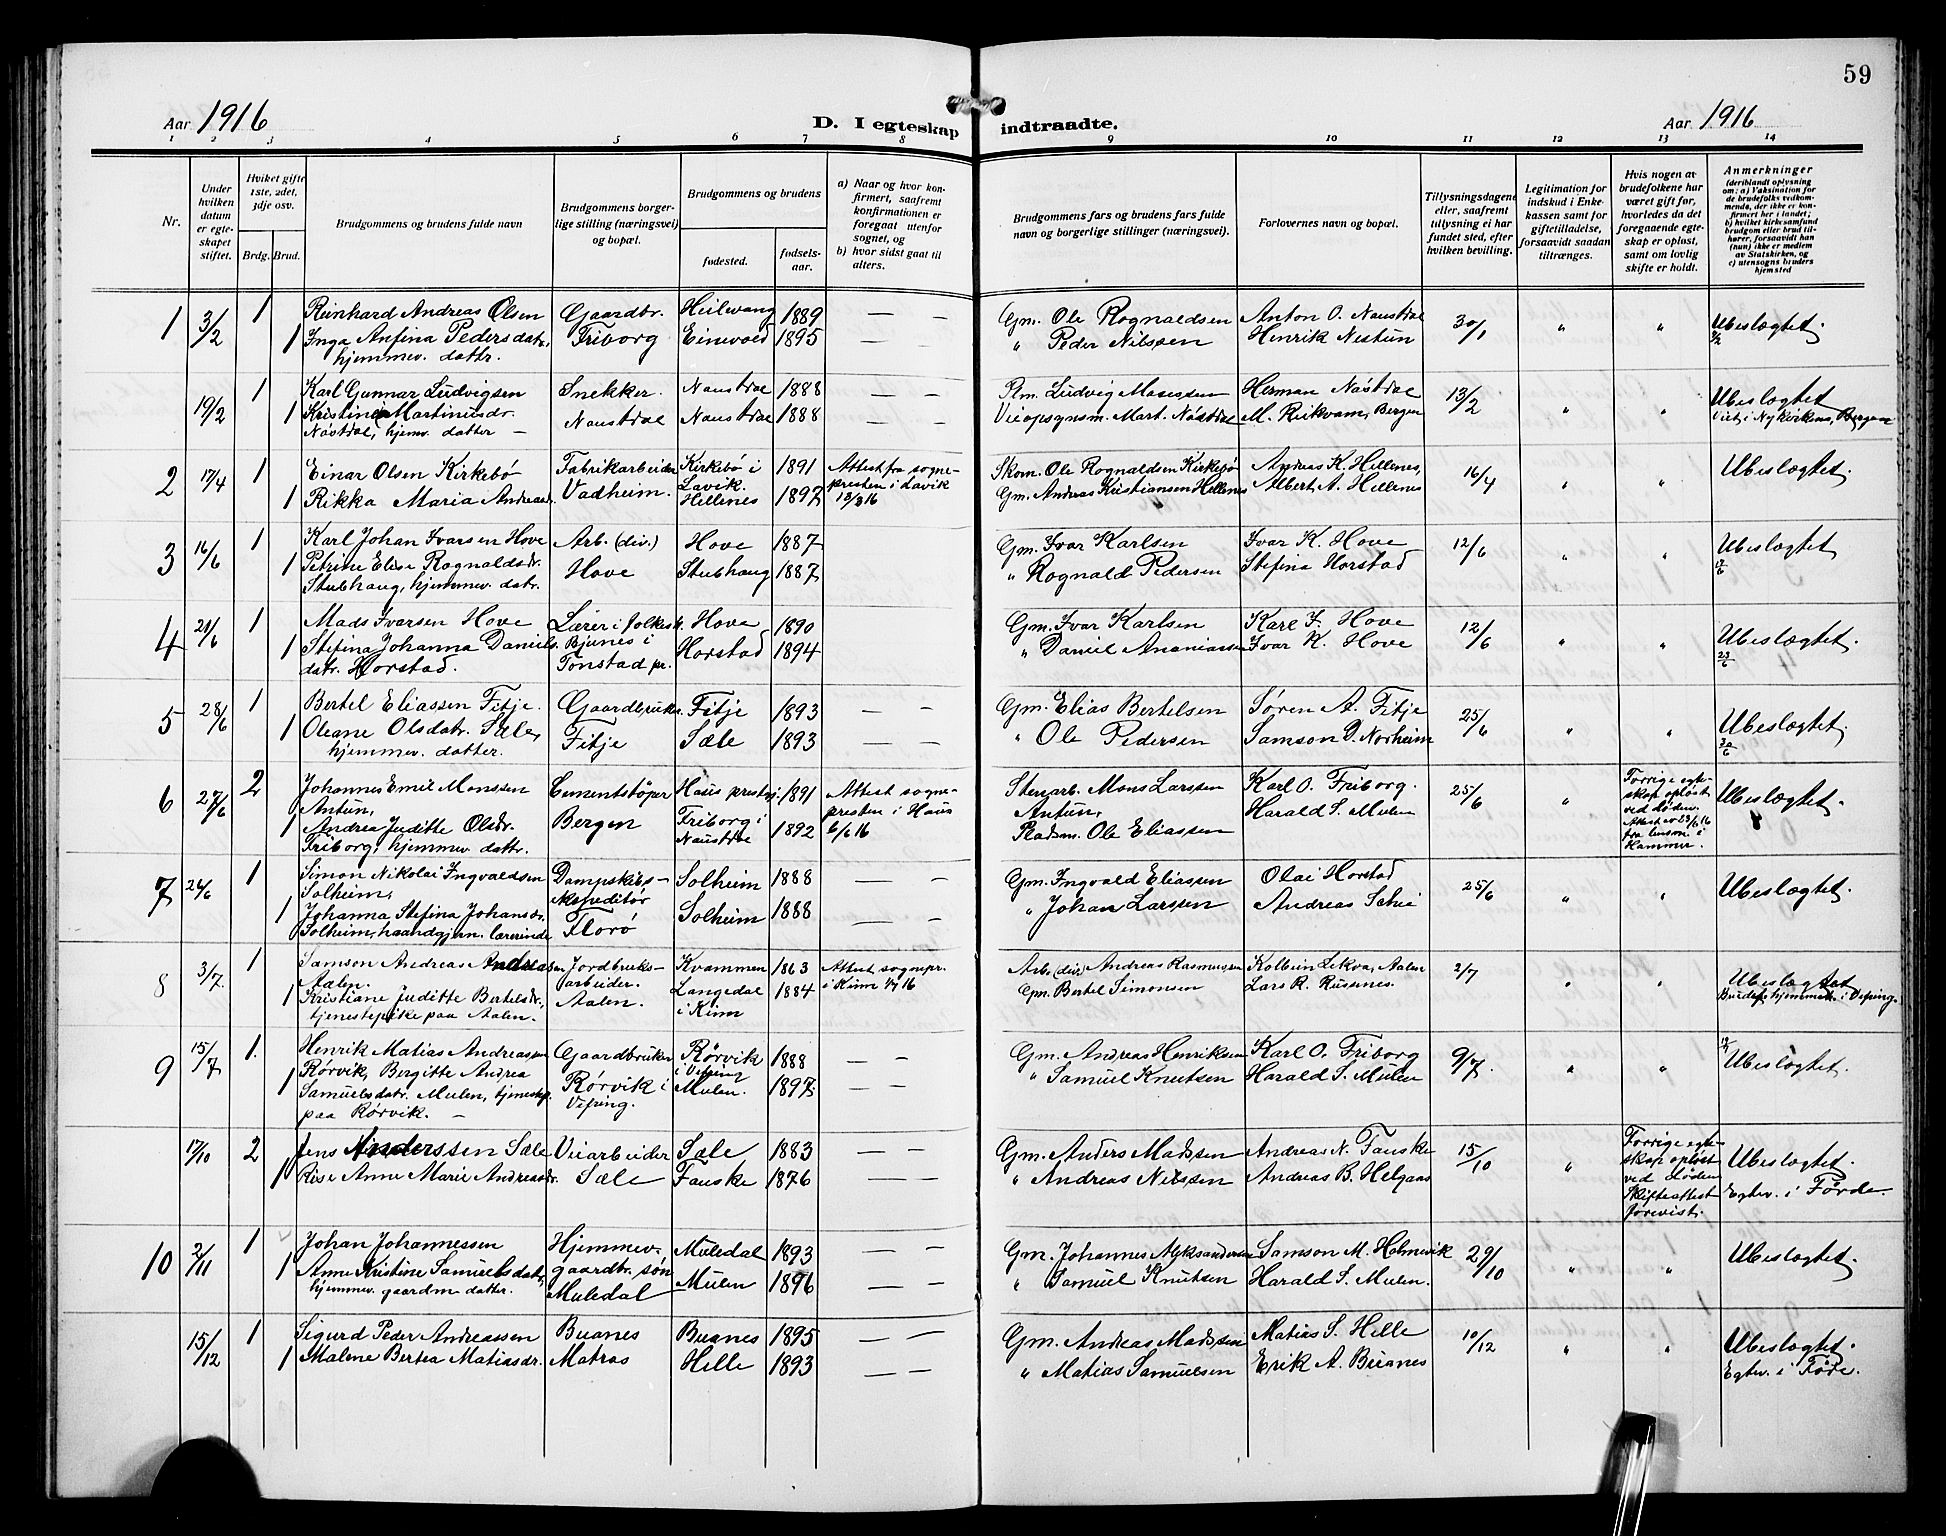 59
Aar 1916
D. I egteskap indtraadte.
Aar 1916
1 2 3 4 5 6 7 8 9 10 11 12 13 14
Nr.
Under hvilken datum er egteskapet stiftet.
Hvilket gifte 1ste, 2det, 3dje osv.
Brdg. Brud.
Brudgommens og brudens fulde navn
Brudgommens borgerlige stilling (næringsvei) og bopæl.
Brudgommens og brudens
fødested.
fødselsaar.
a) Naar og hvor konfirmert, saafremt konfirmationen er foregaat utenfor sognet, og
b) hvor sidst gaat til alters.
Brudgommens fars og brudens fars fulde navn og borgerlige stillinger (næringsvei).
Forlovernes navn og bopæl.
Tillysningsdagene eller, saafremt tillysning ei har fundet sted, efter hvilken bevilling.
Legitimation for indskud i Enkekassen samt for giftetilladelse, forsaavidt saadan tiltrænges.
Hvis nogen av brudefolkene har været gift før, hvorledes da det foregaaende egteskap er opløst, samt om lovlig skifte er holdt.
Anmerkninger
(deriblandt oplysning om: a) Vaksination for de brudefolks vedkommende, der ikke er konfirmert her i landet; b) hvilket kirkesamfund brudgom eller brud tilhører, forsaavidt han (hun) ikke er medlem av Statskirken, og c) utensogns bruders hjemsted
1 3/2 1 Reinhard Andreas Olsen Gaardbr. Heilevang 1889 — — Gm. Ole Rognaldsen Anton O. Naustdal 30/1 " " Ubeslægtet.
1 Inga Anfina Pedersdatr. Friborg Einevold 1895 — — " Peder Nilssen Henrik Nestun
hjemmev. dattr.
19/2 1 Karl Gunnar Ludvigsen Snekker. Naustdal 1888 — — Pm. Ludvig Mosessen Herman Naustdal 13/2 " " Ubeslægtet
1 Kristine Martinusdr. Naustdal Naustdal 1888 — — Mart. Nøstdal M. Reikvam, Bergen Viet i Nykirken, Bergen
Nøstdal, hjemv. datter —
2 17/4 1 Einar Olsen Kirkebø Fabrikarbeider Kirkebø i Lavik. 1891 Attest fra sognepresten i Lavik 13/3 16 Skom. Ole Rognaldsen Kirkebø Andreas K. Hellenes, 16/4 " " Ubeslægtet.
1 Rikka Maria Andreasdr. Vadheim. Hellenes 1897 Gm. Andreas Kristiansen Hellenes Albert A. Hellenes
3 16/6 1 Karl Johan Ivarsen Hove Arb. (div.) Hove 1887 Gm. Ivar Karlsen Ivar K. Hove 12/6 " " Ubeslægtet
1 Petrine Elise Rognaldsdr. Hove Stubhaug 1887 " Rognald Pedersen Stefina Horstad
Stubhaug, hjemmev. datr.
4 21/6 1 Mads Ivarsen Hove Lærer i folkesk. Hove 1890 Gm. Ivar Karlsen Karl I. Hove 12/6 " " Ubeslægtet.
1 Stefina Johanna Daniels. Bjunes i Horstad 1894 " Daniel Ananiassen Ivar K. Hove 23/6
datr. Horstad. Tonstad pr.
5 28/6 1 Bertel Eliassen Fitje. Gaardbruker. Fitje 1893 — — Gm. Elias Bertelsen Søren A. Fitje 25/6 " " Ubeslægtet.
1 Oleane Olsdatr. Sæle, Fitje Sæle 1893 — — " Ole Pedersen Samson D. Norheim 30/6
hjemmev. datter.
6 27/6 2 Johannes Emil Monssen Cementstøper Haus prestgj. 1891 Attest sognepresten i Haus 6/6 16 Stenarb. Mons Larssen Karl O. Friborg. 25/6 " Forrige egteskap opløst ved døden. Attest av 23/6 16 fra lensm. i Hammer. Ubeslægtet.
Antun, Antun, Harald S. Mulen
1 Andrea Juditte Olsdr. Bergen Friborg i Naustdal 1892 Pladsm. Ole Eliassen
Friborg, hjemmev. dattr.
7 26/6 1 Simon Nikolai Ingvaldsen Dampskibs- Solheim 1888 — — Gm. Ingvald Eliassen Olai Horstad 25/6 " " Ubeslægtet.
Solheim, expeditør
1 Johanna Stefina Johansdr. Florø Solheim 1888 — — " Johan Larssen Andreas Schei
Solheim, haandgjern. lærerinde
8 3/7. 1 Samson Andreas Andreassen Jordbruks- Kvammen 1863 Attest sognepr. i Kinn 1/7 16 Arb. (div) Andreas Rasmussen Kolbein Lekva, Aalen 2/7 " " Ubeslægtet
Aalen. arbeider.
1 Kristiane Juditte Bertelsdr, Aalen. Langedal i Kinn 1884 Gm. Bertel Simonsen Lars R. Russenes. Brudefs hjemmeh. i Vefring.
tjenestepike paa Aalen.
9 15/7 1. Henrik Matias Andreassen Gaardbruker Rørvik i Vefring 1888 — — Gm. Andreas Henriksen Karl O. Friborg 9/7. " " Ubeslægtet.
1 Rørvik, Bergitte Andrea Rørvik i Vefring. Mulen. 1897. — — " Samuel Knutsen Harald S. Mulen
Samuelsdatr. Mulen, tjenestep.
paa Rørvik. —
17/10 2 Jens Anderssen Sæle Veiarbeider Sæle 1883 — — Gm. Anders Madssen Andreas N. Fauske 15/10 " Forrige egteskap opløst ved døden Skifteattest forevist. Ubeslægtet.
1 Anne Marie Andreasdr. Sæle Fauske 1876 — — " Andreas Nilssen Andreas B. Helgaas Egtev. i Førde.
10 2/11 1 Johan Johannessen Hjemmev. Muledal 1893 — — Gm. Johannes Aleksandersen Samson M. Holmevik 29/10 " " Ubeslægtet.
1 Anne Kristine Samuelsdatr, gaardbr. søn Mulen 1896 — — " Samuel Knutsen Harald S. Mulen.
hjemmev. gaardm datter. Muledal
15/12 1 Sigurd Peder Andreassen Buanes Buanes 1895 — — Gm. Andreas Madssen Matias S. Helle 10/12 " " Ubeslægtet.
1 Malene Bertea Matiasdr. Matros Helle 1893 — — " Matias Samuelsen Erik A. Buanes Egtev. i Føde.